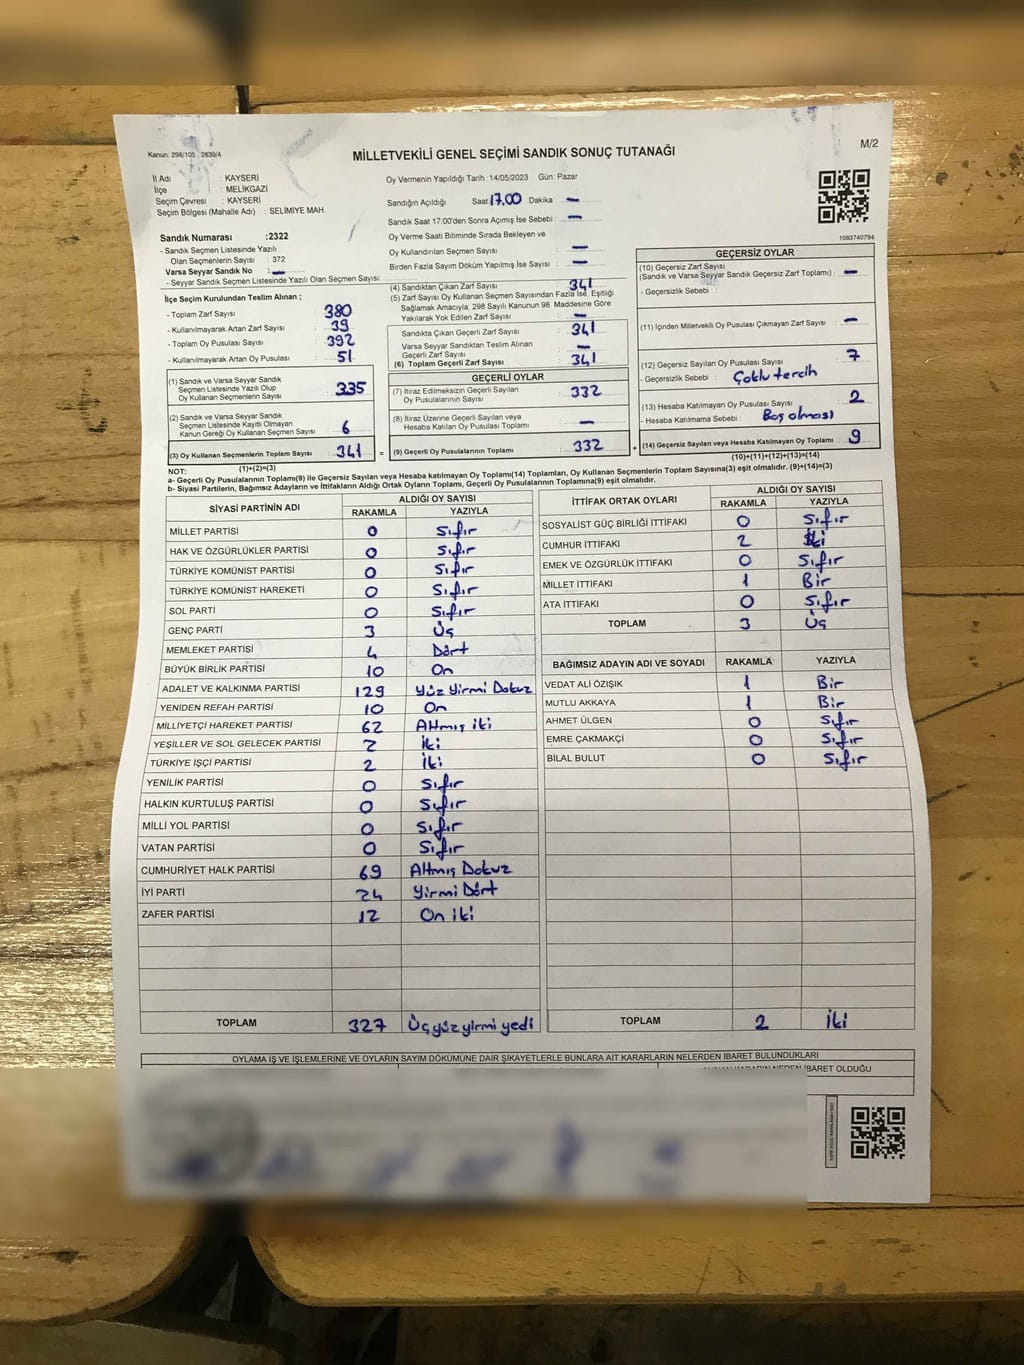 Kanun: 298/105, 2839/4
MİLLETVEKİLİ GENEL SEÇİMİ SANDIK SONUÇ TUTANAĞI
M/2
İl Adı : KAYSERİ
İlçe : MELİKGAZİ
Seçim Çevresi : KAYSERİ
Seçim Bölgesi (Mahalle Adı) : SELİMİYE MAH.
Oy Vermenin Yapıldığı Tarih : 14/05/2023 Gün: Pazar
Sandığın Açıldığı Saat 17.00 Dakika : —
Sandık Saat 17:00'den Sonra Açımış İse Sebebi : —
Oy Verme Saati Bitiminde Sırada Bekleyen ve
Oy Kullandırılan Seçmen Sayısı : —
Birden Fazla Sayım Döküm Yapılmış İse Sayısı : —
1083740794
Sandık Numarası :2322
- Sandık Seçmen Listesinde Yazılı
Olan Seçmenlerin Sayısı : 372
Varsa Seyyar Sandık No : —
- Seyyar Sandık Seçmen Listesinde Yazılı Olan Seçmen Sayısı:
İlçe Seçim Kurulundan Teslim Alınan ;
- Toplam Zarf Sayısı : 380
- Kullanılmayarak Artan Zarf Sayısı : 39
- Toplam Oy Pusulası Sayısı : 392
- Kullanılmayarak Artan Oy Pusulası : 51
(1) Sandık ve Varsa Seyyar Sandık
Seçmen Listesinde Yazılı Olup
Oy Kullanan Seçmenlerin Sayısı : 335
(2) Sandık ve Varsa Seyyar Sandık
Seçmen Listesinde Kayıtlı Olmayan
Kanun Gereği Oy Kullanan Seçmen Sayısı : 6
(3) Oy Kullanan Seçmenlerin Toplam Sayısı : 341
(1)+(2)=(3)
(4) Sandıktan Çıkan Zarf Sayısı : 341
(5) Zarf Sayısı Oy Kullanan Seçmen Sayısından Fazla İse, Eşitliği
Sağlamak Amacıyla; 298 Sayılı Kanunun 98. Maddesine Göre
Yakılarak Yok Edilen Zarf Sayısı : —
Sandıkta Çıkan Geçerli Zarf Sayısı : 341
Varsa Seyyar Sandıktan Teslim Alınan
Geçerli Zarf Sayısı : —
(6) Toplam Geçerli Zarf Sayısı : 341
GEÇERLİ OYLAR
(7) İtiraz Edilmeksizin Geçerli Sayılan
Oy Pusulalarının Toplamı : 332
(8) İtiraz Üzerine Geçerli Sayılan veya
Hesaba Katılan Oy Pusulası Toplamı : —
= (9) Geçerli Oy Pusulalarının Toplamı : 332
GEÇERSİZ OYLAR
(10) Geçersiz Zarf Sayısı
(Sandık ve Varsa Seyyar Sandık Geçersiz Zarf Toplamı) : —
- Geçersizlik Sebebi :
(11) İçinden Milletvekili Oy Pusulası Çıkmayan Zarf Sayısı : —
(12) Geçersiz Sayılan Oy Pusulası Sayısı : 7
- Geçersizlik Sebebi : Çoklu tercih
(13) Hesaba Katılmayan Oy Pusulası Sayısı : 2
- Hesaba Katılmama Sebebi : Boş olması
+ (14) Geçersiz Sayılan veya Hesaba Katılmayan Oy Toplamı : 9
(10)+(11)+(12)+(13)=(14)
NOT:
a- Geçerli Oy Pusulalarının Toplamı(9) ile Geçersiz Sayılan veya Hesaba Katılmayan Oy Toplamı(14) Toplamları, Oy Kullanan Seçmenlerin Toplam Sayısına(3) eşit olmalıdır. (9)+(14)=(3)
b- Siyasi Partilerin, Bağımsız Adayların ve İttifakların Aldığı Ortak Oyların Toplamı, Geçerli Oy Pusulalarının Toplamına(9) eşit olmalıdır.
SİYASİ PARTİNİN ADI ALDIĞI OY SAYISI
RAKAMLA YAZIYLA
MİLLET PARTİSİ 0 Sıfır
HAK VE ÖZGÜRLÜKLER PARTİSİ 0 Sıfır
TÜRKİYE KOMÜNİST PARTİSİ 0 Sıfır
TÜRKİYE KOMÜNİST HAREKETİ 0 Sıfır
SOL PARTİ 0 Sıfır
GENÇ PARTİ 3 Üç
MEMLEKET PARTİSİ 4 Dört
BÜYÜK BİRLİK PARTİSİ 10 On
ADALET VE KALKINMA PARTİSİ 129 Yüz Yirmi Dokuz
YENİDEN REFAH PARTİSİ 10 On
MİLLİYETÇİ HAREKET PARTİSİ 62 Altmış iki
YEŞİLLER VE SOL GELECEK PARTİSİ 2 İki
TÜRKİYE İŞÇİ PARTİSİ 2 İki
YENİLİK PARTİSİ 0 Sıfır
HALKIN KURTULUŞ PARTİSİ 0 Sıfır
MİLLİ YOL PARTİSİ 0 Sıfır
VATAN PARTİSİ 0 Sıfır
CUMHURİYET HALK PARTİSİ 69 Altmış Dokuz
İYİ PARTİ 24 Yirmi Dört
ZAFER PARTİSİ 12 On iki
TOPLAM 327 Üçyüz yirmi yedi
İTTİFAK ORTAK OYLARI ALDIĞI OY SAYISI
RAKAMLA YAZIYLA
SOSYALİST GÜÇ BİRLİĞİ İTTİFAKI 0 Sıfır
CUMHUR İTTİFAKI 2 İki
EMEK VE ÖZGÜRLÜK İTTİFAKI 0 Sıfır
MİLLET İTTİFAKI 1 Bir
ATA İTTİFAKI 0 Sıfır
TOPLAM 3 Üç
BAĞIMSIZ ADAYIN ADI VE SOYADI RAKAMLA YAZIYLA
VEDAT ALİ ÖZIŞIK 1 Bir
MUTLU AKKAYA 1 Bir
AHMET ÜLGEN 0 Sıfır
EMRE ÇAKMAKÇI 0 Sıfır
BİLAL BULUT 0 Sıfır
TOPLAM 2 İki
OYLAMA İŞ VE İŞLEMLERİNE VE OYLARIN SAYIM DÖKÜMÜNE DAİR ŞİKAYETLERLE BUNLARA AİT KARARLARIN NELERDEN İBARET BULUNDUKLARI
İBARET OLDUĞU